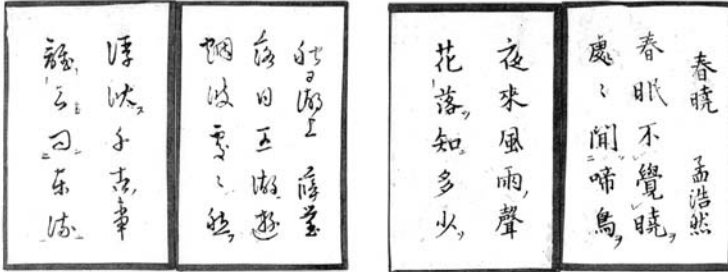 春曉 孟浩然
春眠不覺曉
處〻聞啼鳥
夜來風雨聲
花落知多少
秋日湖上 薛瑩
落日五湖遊
烟波處〻愁
浮沈千古事
誰与問東流